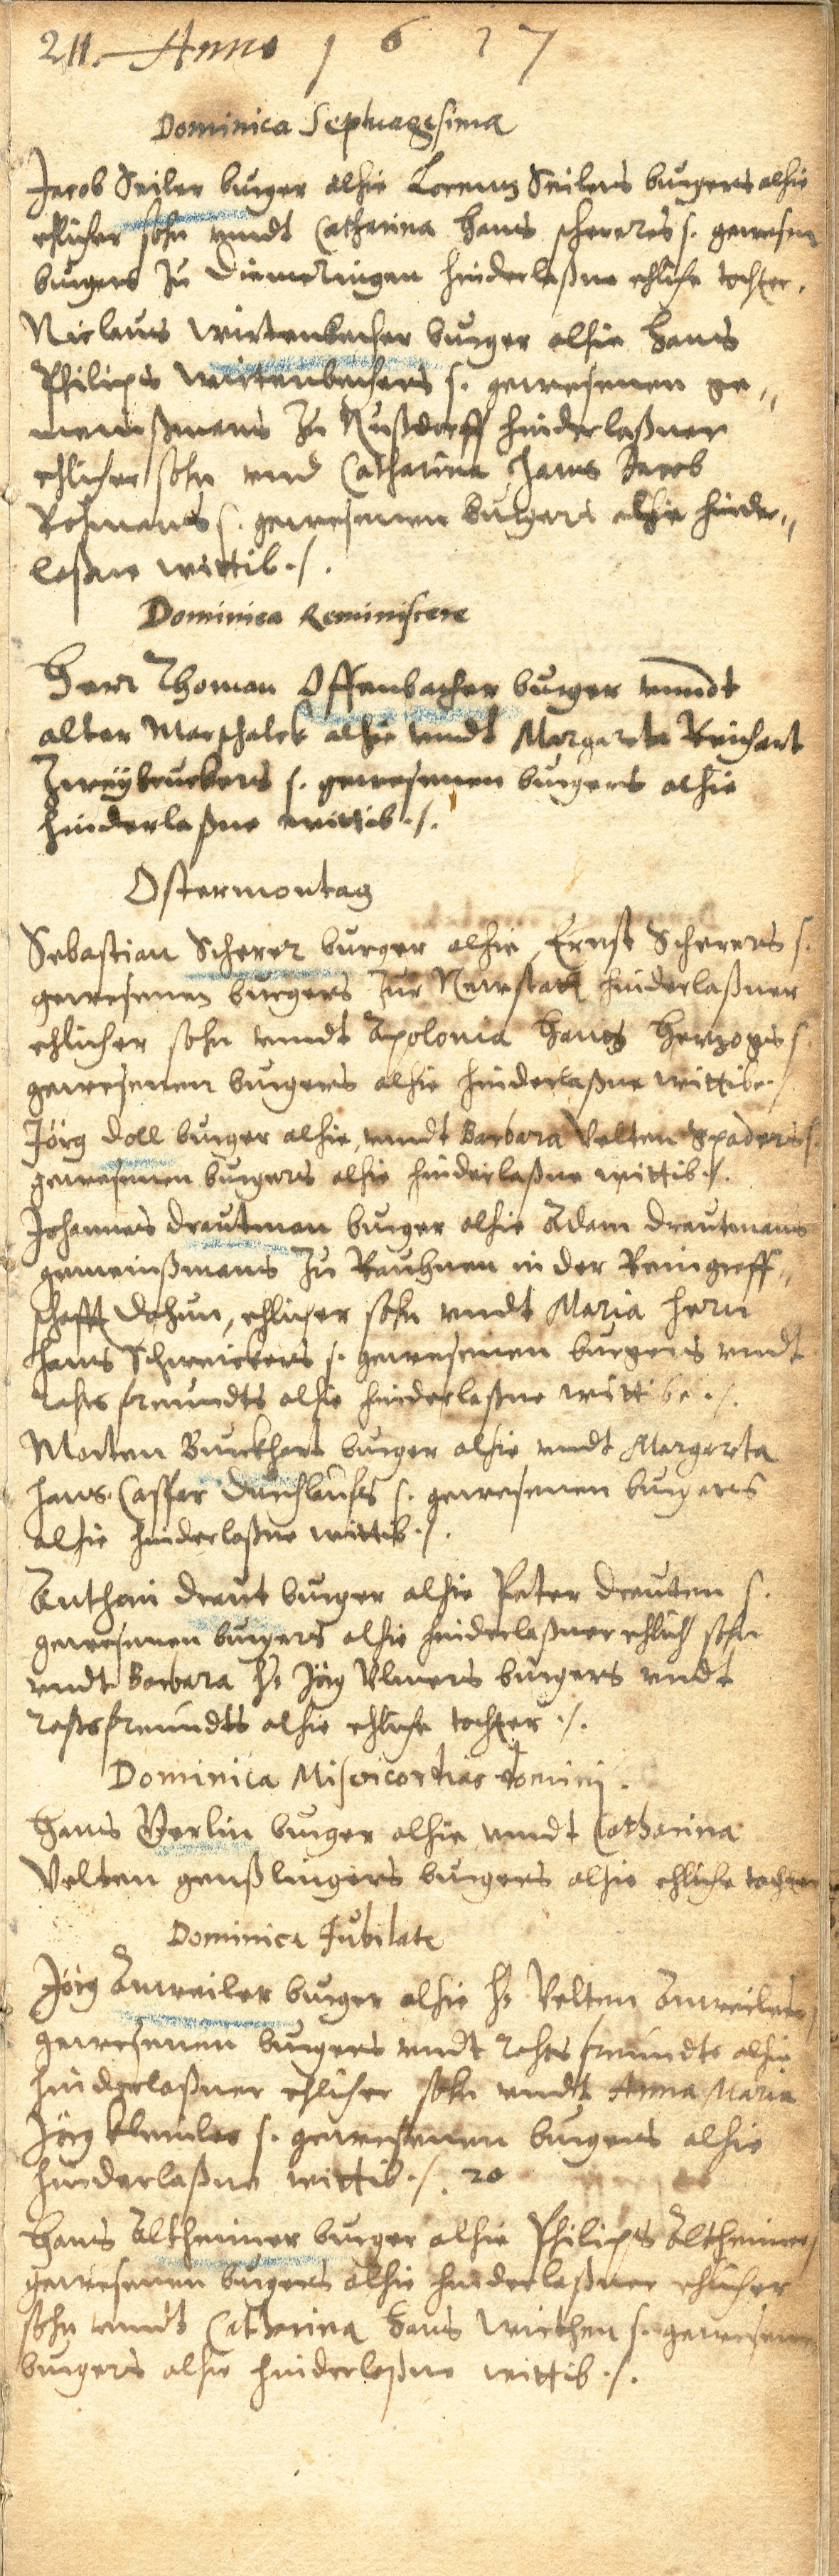 211. Anno 1 6 2 7
Dominica Septuagesima
Jacob Seiler burger alhie Lorentz Seilers burgers alhie
ehlicher sohn vndt Catharina Hans scherers s. gewesen
burgers zu Diemeringen hinderlaßne ehliche tochter.
Niclaus Wirtenbecher burger alhie Hans
Philips Wirtenbechers s. gewesenen ge„
meinßmans zu Nußdorff hinderlaßner
ehlicher sohn vnd Catharina Hans Jacob
s. gewesenen burgers alhie hinder„
laßne wittib ./.
Dominica Reminiscere
Herr Thoman Offenbacher burger vnndt
alter Marschalck alhie vndt Margareta Reichart
Zweÿbruckers s. gewesenen burgers alhie
hinderlaßne wittib ./.
Ostermontag
Sebastian Scherer burger alhie, Ernst Scherers s.
gewesenen burgers zur Newstatt hinderlaßner
ehlicher sohn vnndt Apolonia Hans Hertzogs s.
gewesenen burgers alhie hinderlaßne wittibe ./
Jörg Doll burger alhie, vnndt Barbara Velten Spaders s.
gewesenen burgers alhie hinderlaßne wittib ./.
Johannes Drautman burger alhie Adam Drautmans
gemeinßmans zu Rauhnen in der Reingraff„
schafft Dahun, ehlicher sohn vndt Maria Herrn
Hans Schweickers s. gewesenen burgers vndt
rahts freundts alhie hinderlaßne wittibe ./.
Marten Burckhart burger alhie vndt Margreta
Hans Caspar s. gewesenen burgers
alhie hinderlaßne wittib ./.
Anthoni Draut burger alhie Peter Drauten s.
gewesenen burgers alhie hinderlaßner ehlich sohn
vndt Barbara H. Jörg Vlmers burgers vndt
rahtsfreundts alhie ehliche tochter ./.
Dominica Misericordias domini.
Hans Verlin burger alhie vnndt Catharina
Velten genßlingers burgers alhie ehliche tochter
Dominica Jubilate
Jörg Anweiler burger alhie H. Velten Anweilers
gewesenen burgers vndt rahts freundts alhie
hinderlaßner ehlicher sohn vndt Anna Maria
Jörg s. gewesenen burgers alhie
hinderlaßne wittib ./. 20
Hans Altheimer burger alhie Philips Altheimers
gewesenen burgers alhie hinderlaßner ehlicher
sohn vnndt Catharina Hans Wirthen s. gewesenen
burgers alhie hinderlaßne wittib ./.